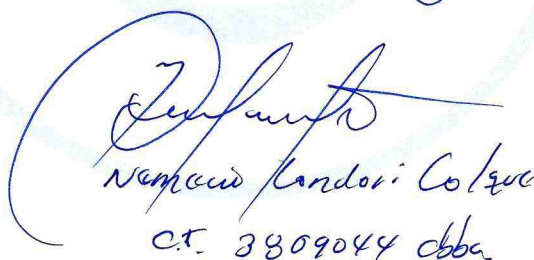 Nemecio Condori Colque
C.I. 3809044 cbba